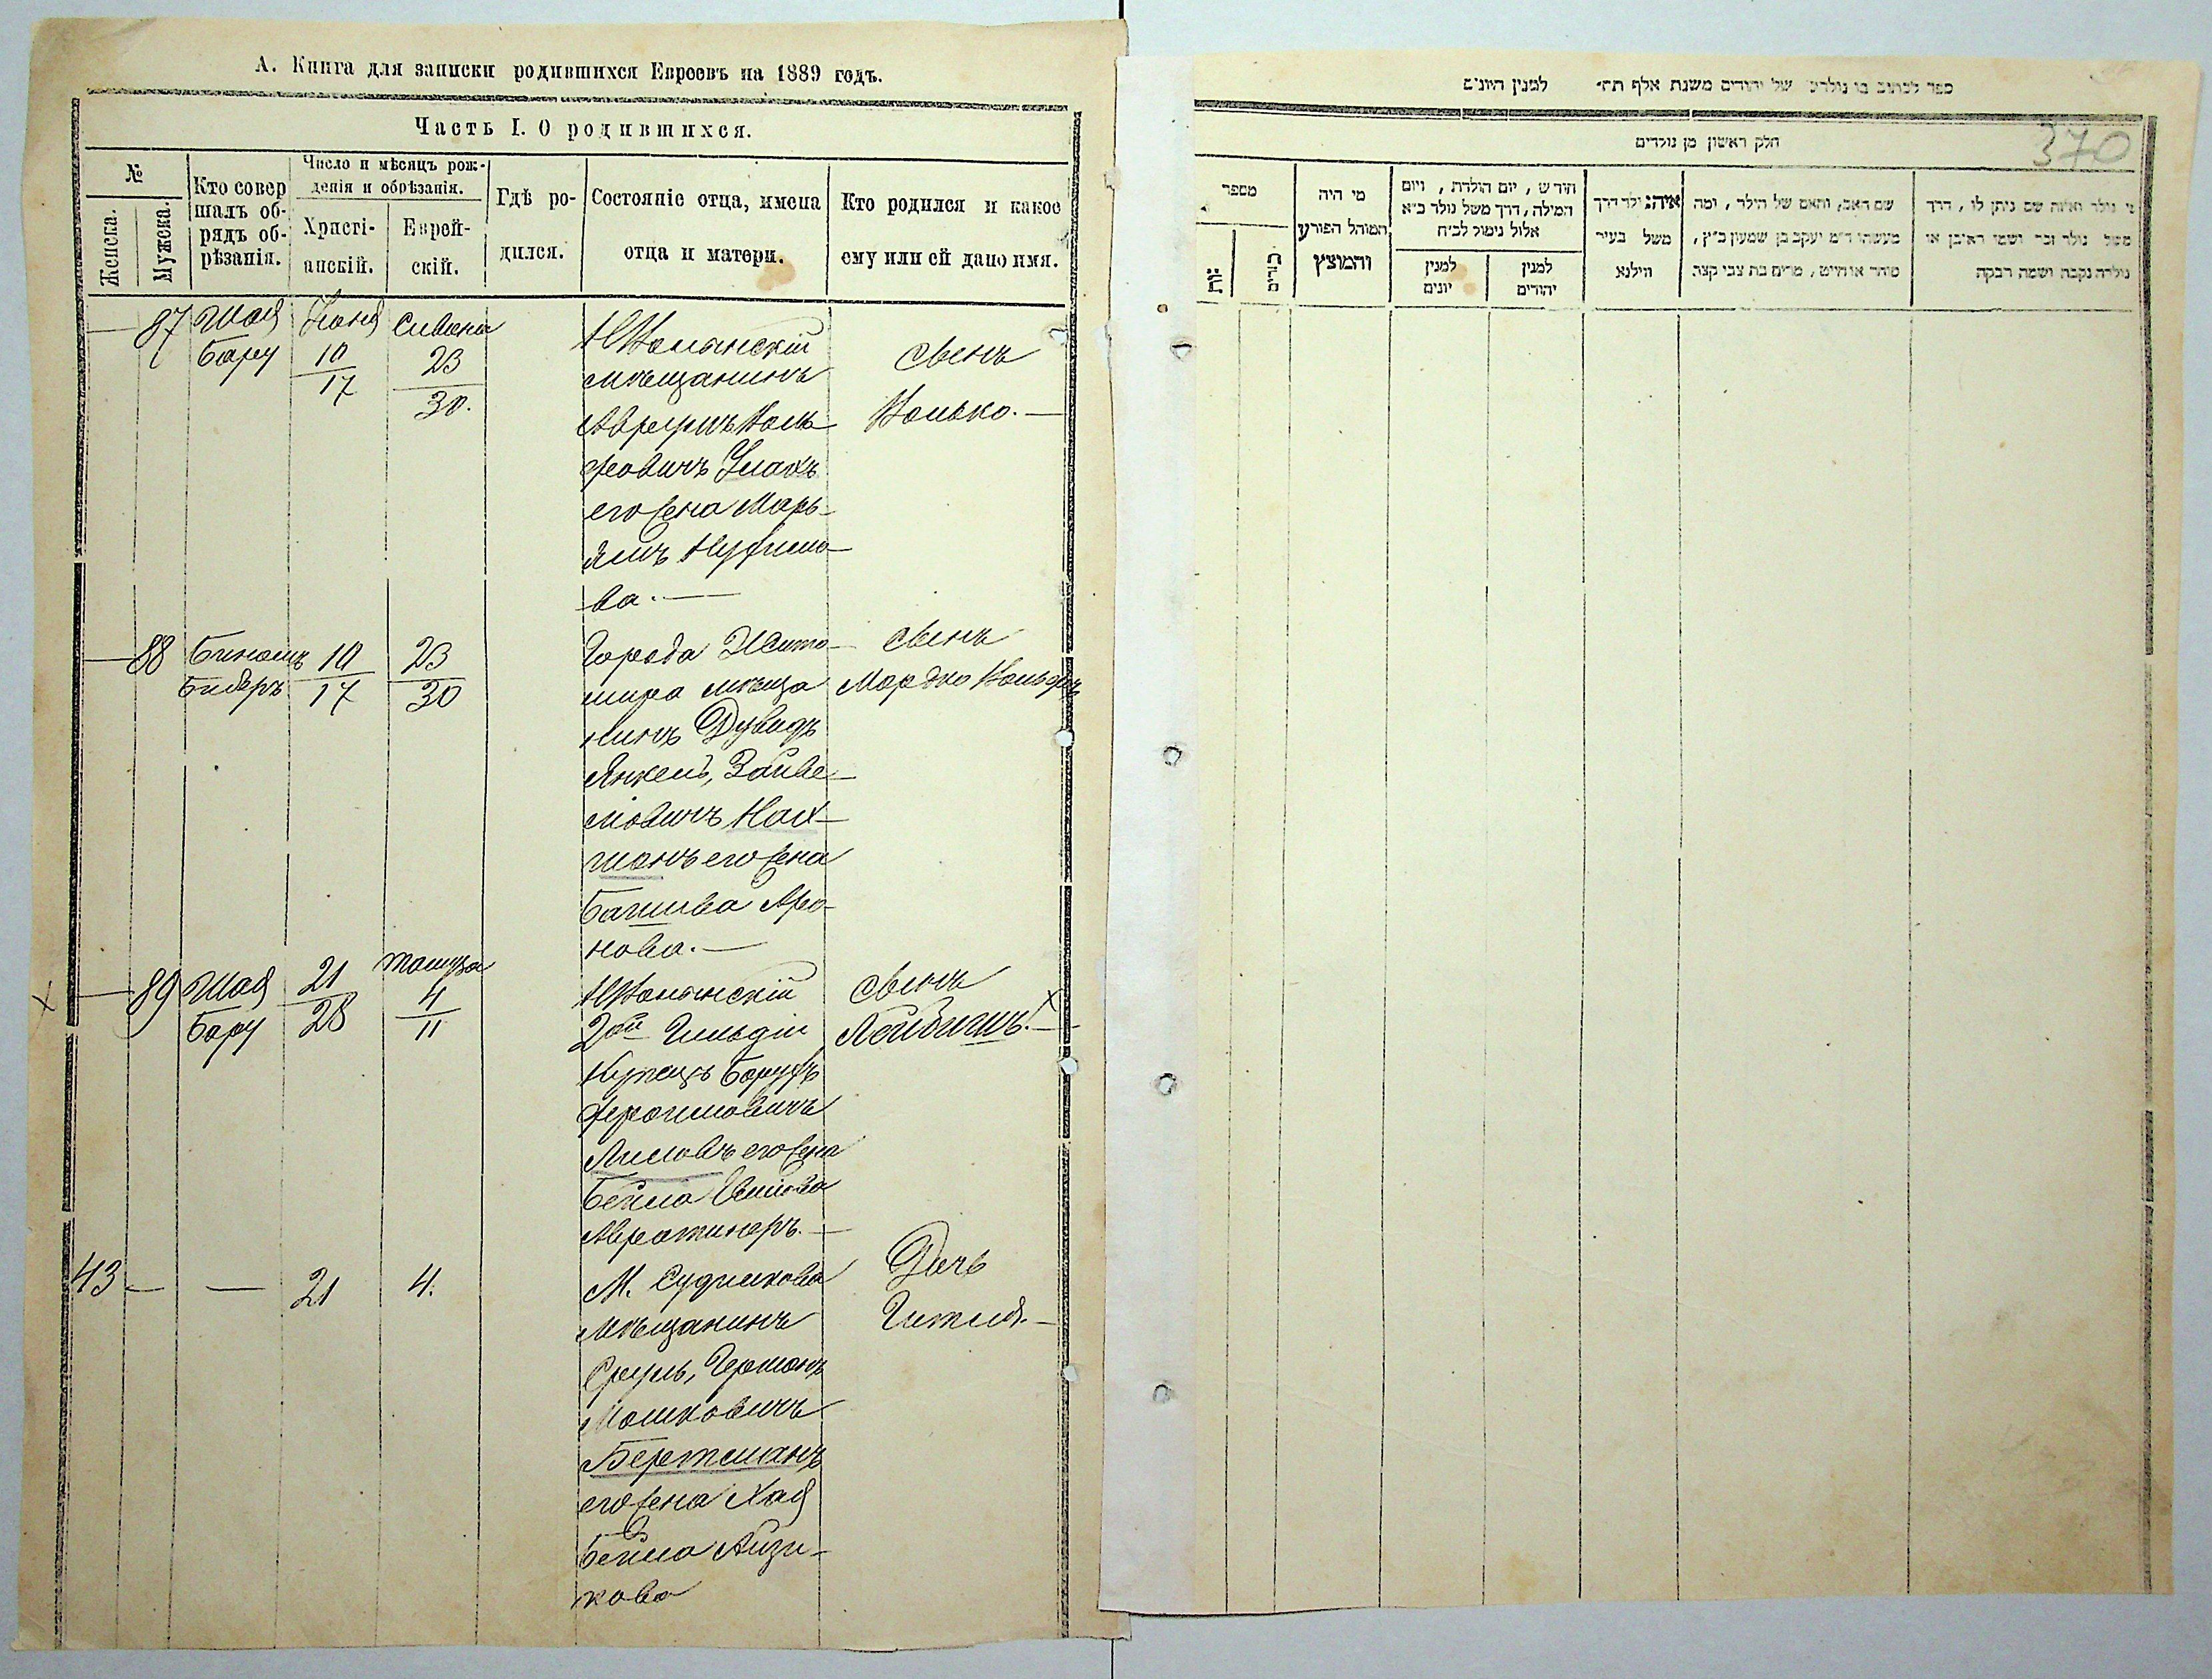 А. Книга для записки родившихся Евреевъ на 1889 годъ.
Часть I. О родившихся.
№
Женска.
Мужска.
Кто совер
шалъ об-
рядъ об-
рѣзанія.
Число и мѣсяцъ рож-
денія и обрѣзанія.
Христі-
анскій.
Еврей-
скій.
Гдѣ ро-
дился.
Состояніе отца, имена
отца и матери.
Кто родился и какое
ему или ей дано имя.
— 87
Шая
Бару
Іюня
10
17
Сивана
23
30.
мѣщанинъ
его жена Марь-
ямъ
ва. —
сынъ
Волько. —
— 88
Биномъ
Бидеръ
10
17
23
30
Города Жито-
мира мѣща
нинъ Дувидъ
Янкель, Зайве-
ловичъ Нах-
манъ его жена
Башива Аро-
нова. —
сынъ
Мордко Вольфъ
— 89
Шая
Бару
21
28
Тамуза
4
11
2ой Гильдіи
Купецъ Борухъ
его жена
Бейла
сынъ
Лейбишъ. —
43 —
—
21
4.
М. Судилкова
мѣщанинъ
Сруль, Германъ
Мошковичъ
Беретманъ
его жена Хая
Бейла Айзи-
кова
Дочь
Гитля. —
370
ספר לכתוב בו נולדים של יהודים משנת אלף תת׳ למנין היונים
חלק ראשון מן נולדים
מספר
מי היה
המוהל הפורע
והמוצץ
חודש, יום הולדת, ויום
המילה, דרך משל נולד כ״א
אלול נימול לכ״ח
למנין
יונים
למנין
יהודים
איה: ילד דרך
משל בעיר
ווילנא
שם האב, והאם של הילד, ומה
מעשהו ד״מ יעקב בן שמעון כ״ץ,
סוחר או חייט, מרים בת צבי קצה
מי נולד ואיזה שם ניתן לו, דרך
משל נולד זכר ושמו ראובן או
נולדה נקבה ושמה רבקה